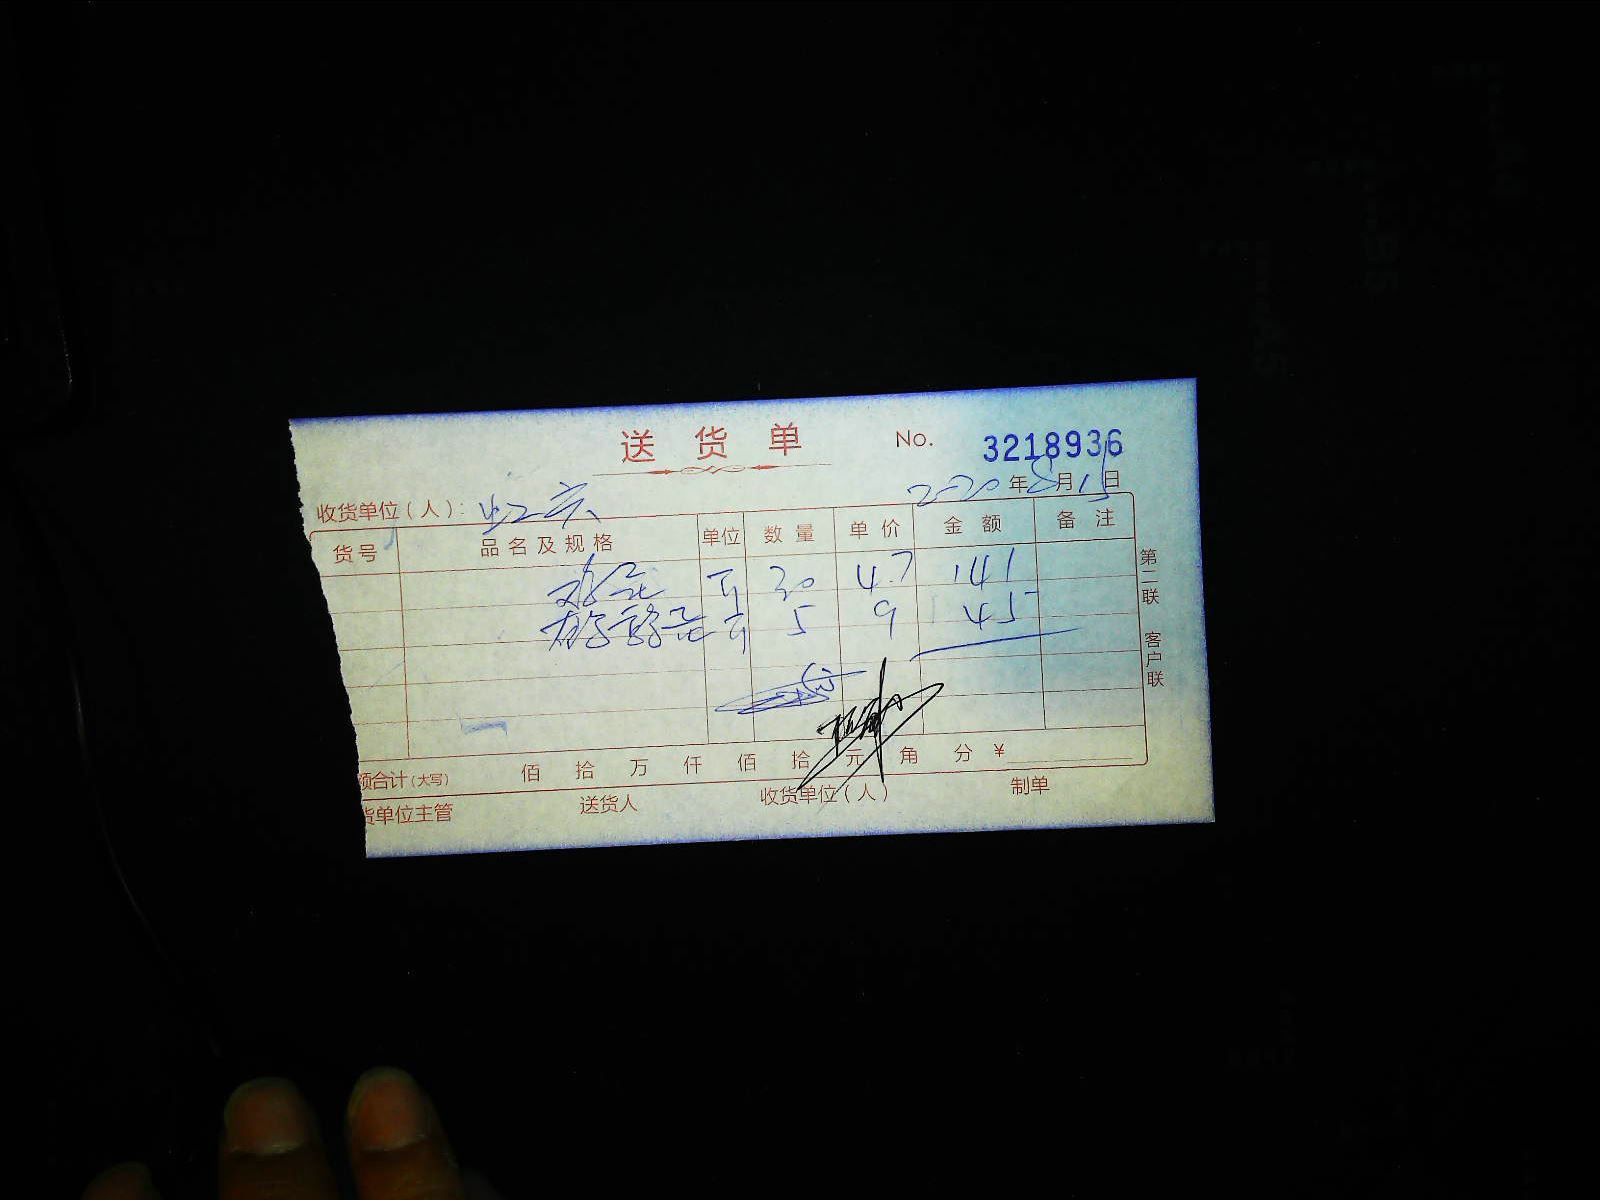 送货单 No. 3218936
2020年8月15日
收货单位(人):
货号 品名及规格 单位 数量 单价 金额 备注
鸡蛋 斤 30 4.7 141
斤 5 9 45
第二联 客户联
额合计(大写) 佰 拾 万 仟 佰 拾 元 角 分 ¥
货单位主管 送货人 收货单位(人) 制单